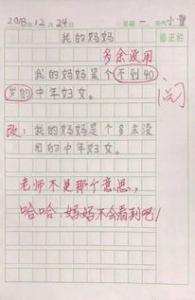 2018年12月24日 星期一
我的妈妈
多余没用
我的妈妈是个不到40
岁的中年妇女。
阅
改:我的妈妈是个多余没
用的中年妇女。
老师不是那个意思,
哈哈,妈妈不会看到吧!